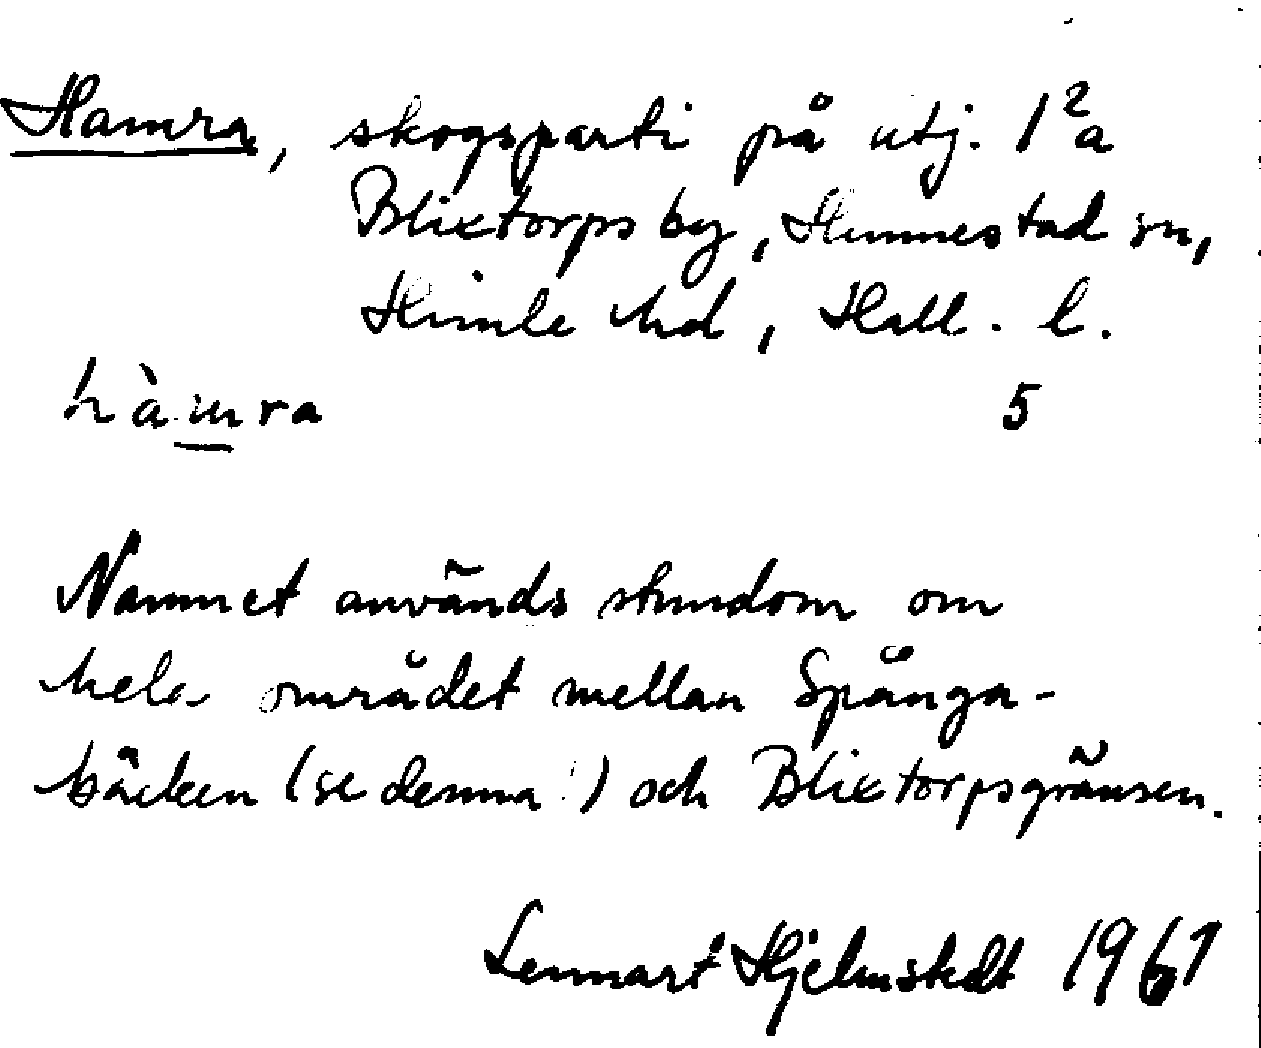 Hamra, skogsparti på utj. 1²a
Blixtorps by, Hunnestad sn,
Himle hd, Hall. l.
hàmra 5
Namnet används stundom om
hela området mellan Spånga-
bäcken (se denna!) och Blixtorpsgränsen.
Lennart Hjelmstedt 1961